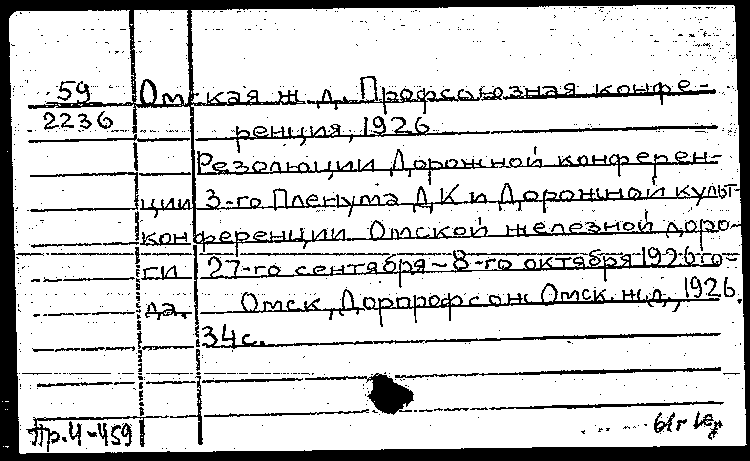 59 Омская ж. д. Профсоюзная конфе-
2236 ренция, 1926
Резолюции Дорожной конферен-
ции 3-го Пленума ДК и Дорожной культ-
конференции Омской железной доро-
ги 27-го сентября - 8-го октября 1926 го-
да. Омск, Дорпрофсож Омск. ж.д., 1926.
34 с.
Пр. 4-459 61г